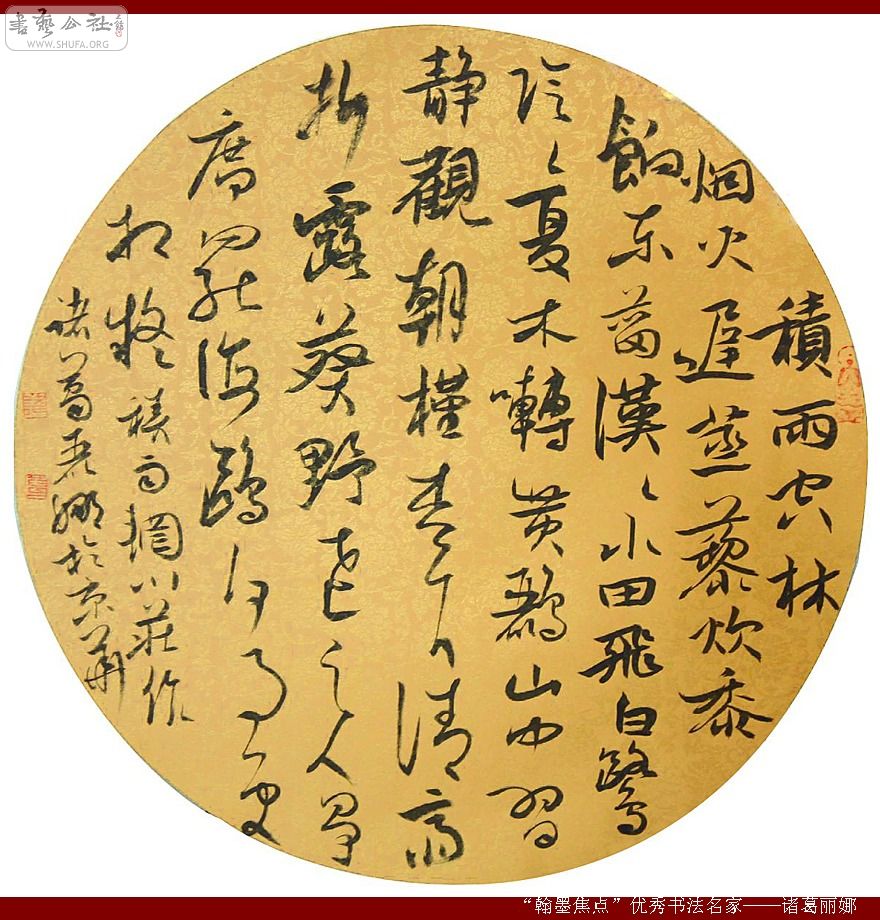 書藝公社
WWW.SHUFA.ORG
積雨空林
烟火遲蒸藜炊黍
餉東菑漠〻水田飛白鷺
陰〻夏木囀黃鸝山中習
靜觀朝槿松下清齋
折露葵野老与人爭
席罷海鷗何事更
相疑積雨輞川莊作
诸葛麗娜於京華
“翰墨焦点”优秀书法名家——诸葛丽娜